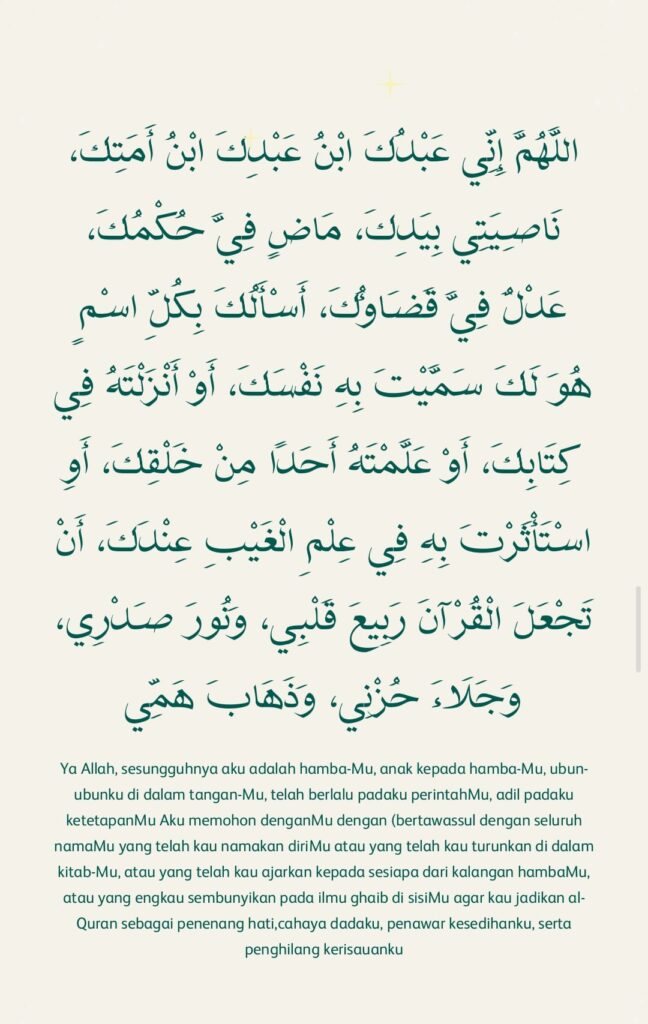 اللَّهُمَّ إِنِّي عَبْدُكَ ابْنُ عَبْدِكَ ابْنُ أَمَتِكَ،
نَاصِيَتِي بِيَدِكَ، مَاضٍ فِيَّ حُكْمُكَ،
عَدْلٌ فِيَّ قَضَاؤُكَ، أَسْأَلُكَ بِكُلِّ اسْمٍ
هُوَ لَكَ سَمَّيْتَ بِهِ نَفْسَكَ، أَوْ أَنْزَلْتَهُ فِي
كِتَابِكَ، أَوْ عَلَّمْتَهُ أَحَدًا مِنْ خَلْقِكَ، أَوِ
اسْتَأْثَرْتَ بِهِ فِي عِلْمِ الْغَيْبِ عِنْدَكَ، أَنْ
تَجْعَلَ الْقُرْآنَ رَبِيعَ قَلْبِي، وَنُورَ صَدْرِي،
وَجَلَاءَ حُزْنِي، وَذَهَابَ هَمِّي
Ya Allah, sesungguhnya aku adalah hamba-Mu, anak kepada hamba-Mu, ubun-
ubunku di dalam tangan-Mu, telah berlalu padaku perintahMu, adil padaku
ketetapanMu Aku memohon denganMu dengan (bertawassul dengan seluruh
namaMu yang telah kau namakan diriMu atau yang telah kau turunkan di dalam
kitab-Mu, atau yang telah kau ajarkan kepada sesiapa dari kalangan hambaMu,
atau yang engkau sembunyikan pada ilmu ghaib di sisiMu agar kau jadikan al-
Quran sebagai penenang hati,cahaya dadaku, penawar kesedihanku, serta
penghilang kerisauanku